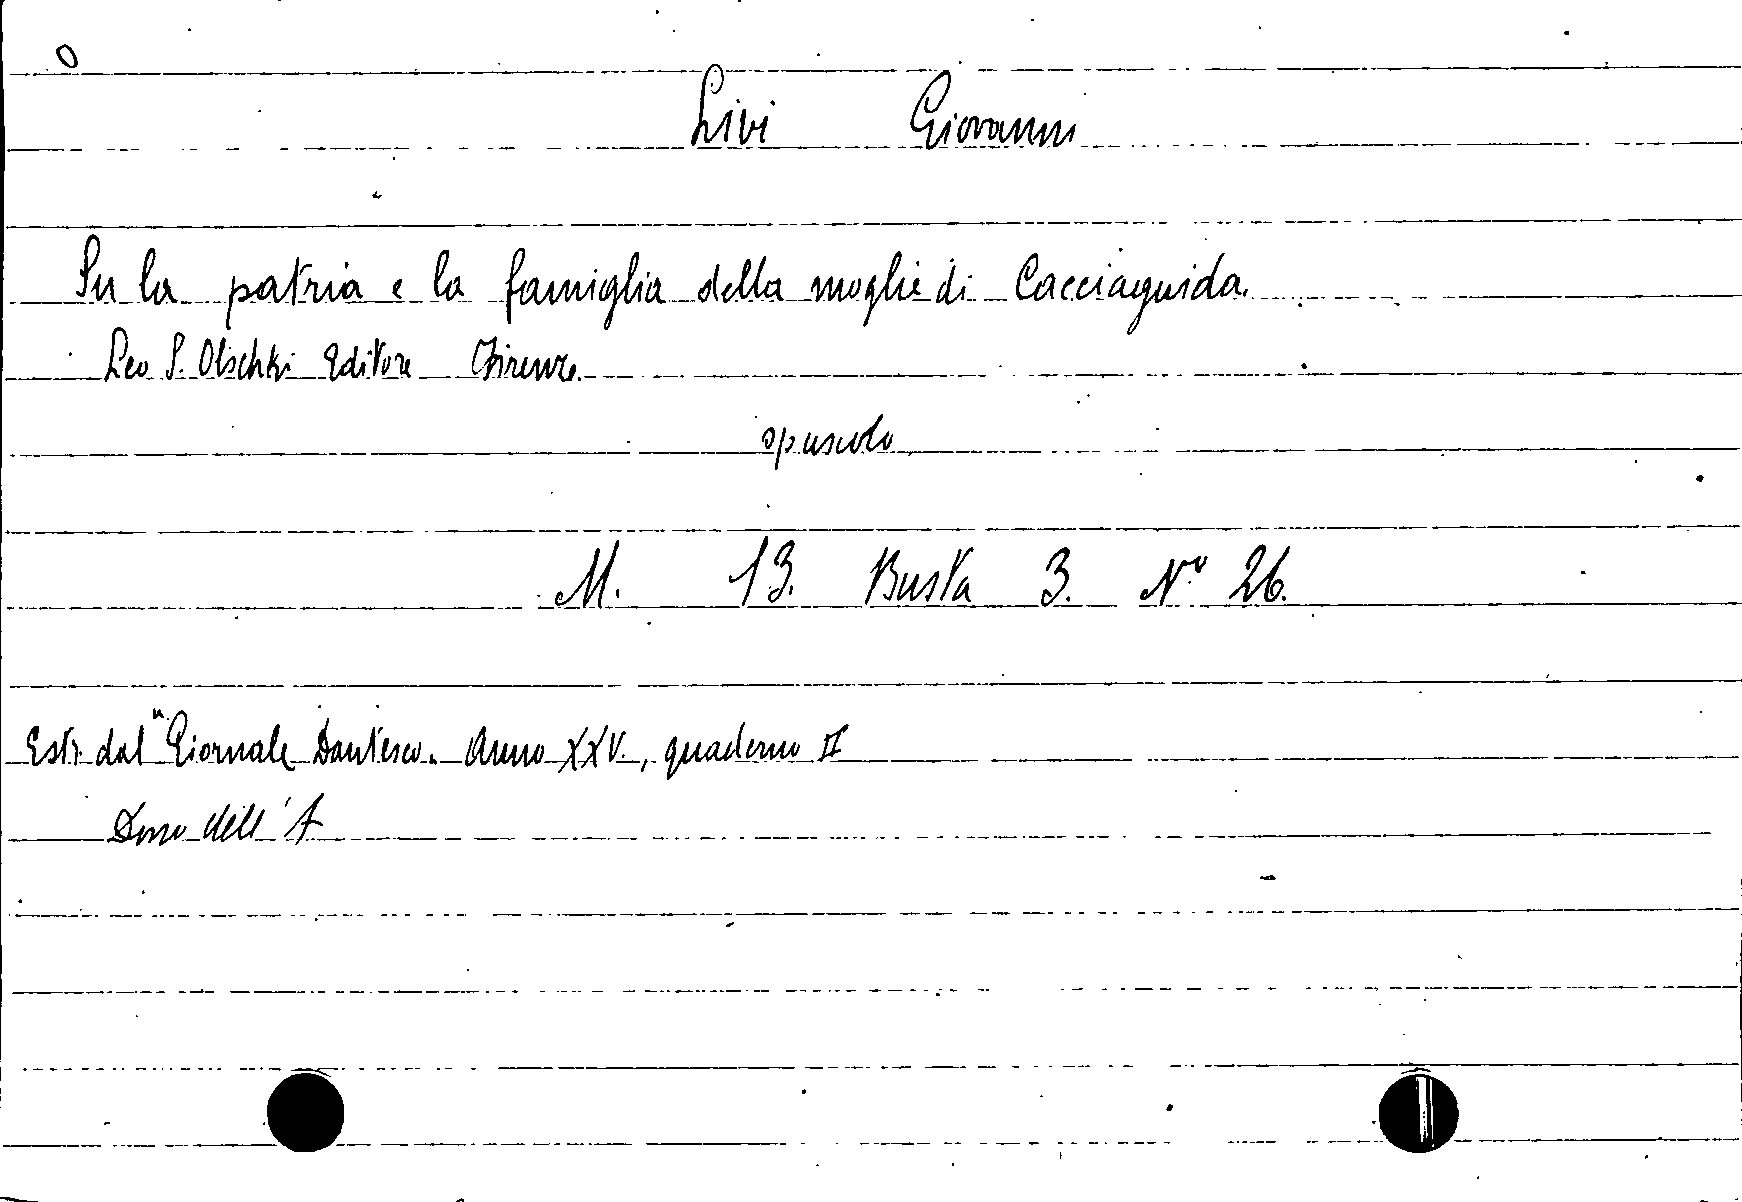 0
Livi Giovanni
Su la patria e la famiglia della moglie di Cacciaguida.
Leo S. Olschki Editore Firenze.
opuscolo
M. 13. Busta 3. Nº 26.
Estr. dal "Giornale Dantesco. Anno XXV., quaderno II
Dono dell'A